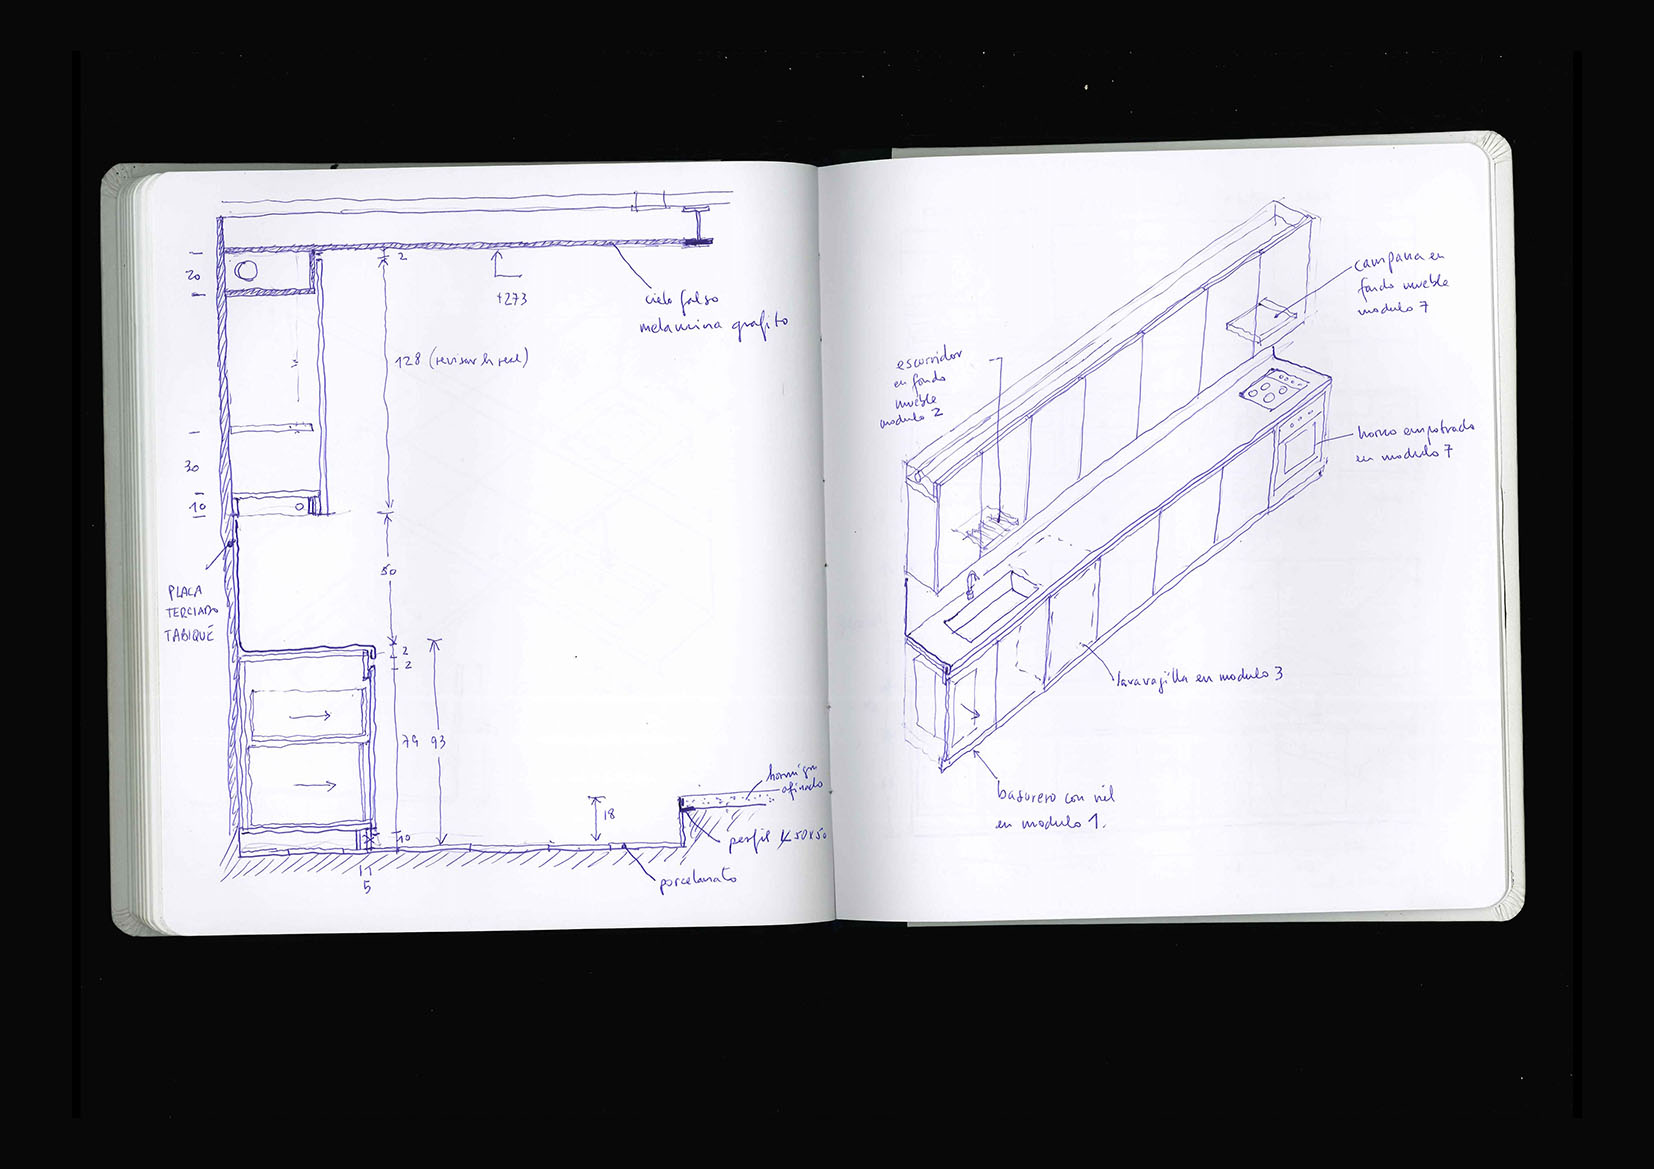 20
2
+273
cielo falso
melamina grafito
128 (revisar h real)
30
10
50
PLACA
TERCIADO
TABIQUE
2
2
79
93
10
5
18
hormigon
afinado
perfil L 50x50
porcelanato
campana en
fondo mueble
modulo 7
escurridor
en fondo
mueble
modulo 2
horno empotrado
en modulo 7
lavavajilla en modulo 3
basurero con riel
en modulo 1.